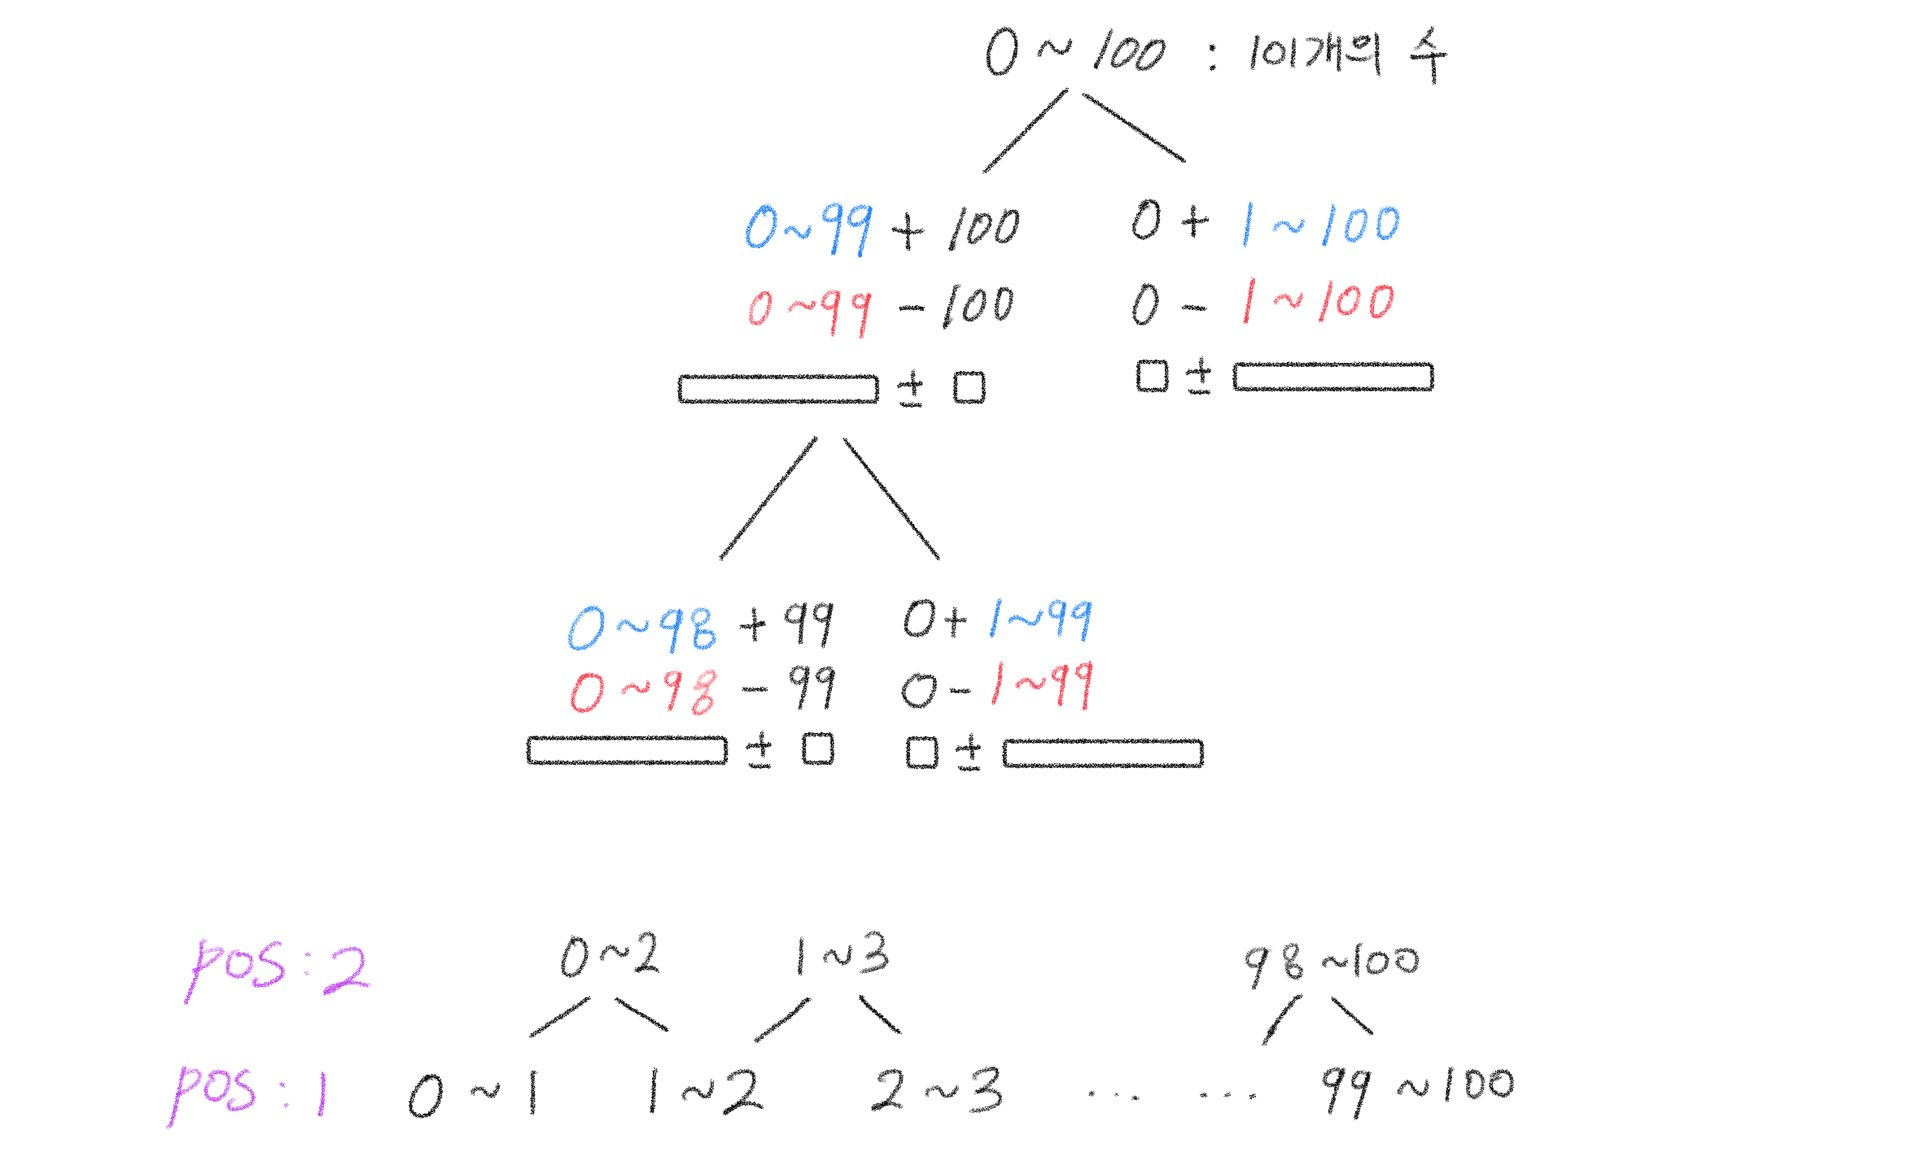 0 ~ 100 : 101개의 수
0~99 + 100 0 + 1 ~ 100
0 ~99 - 100 0 - 1 ~ 100
± ±
0 ~98 + 99 0+ 1~99
0 ~98 - 99 0- 1~99
± ±
pos:2 0~2 1~3 98 ~100
pos:1 0 ~ 1 1 ~2 2 ~3 ... ... 99 ~100